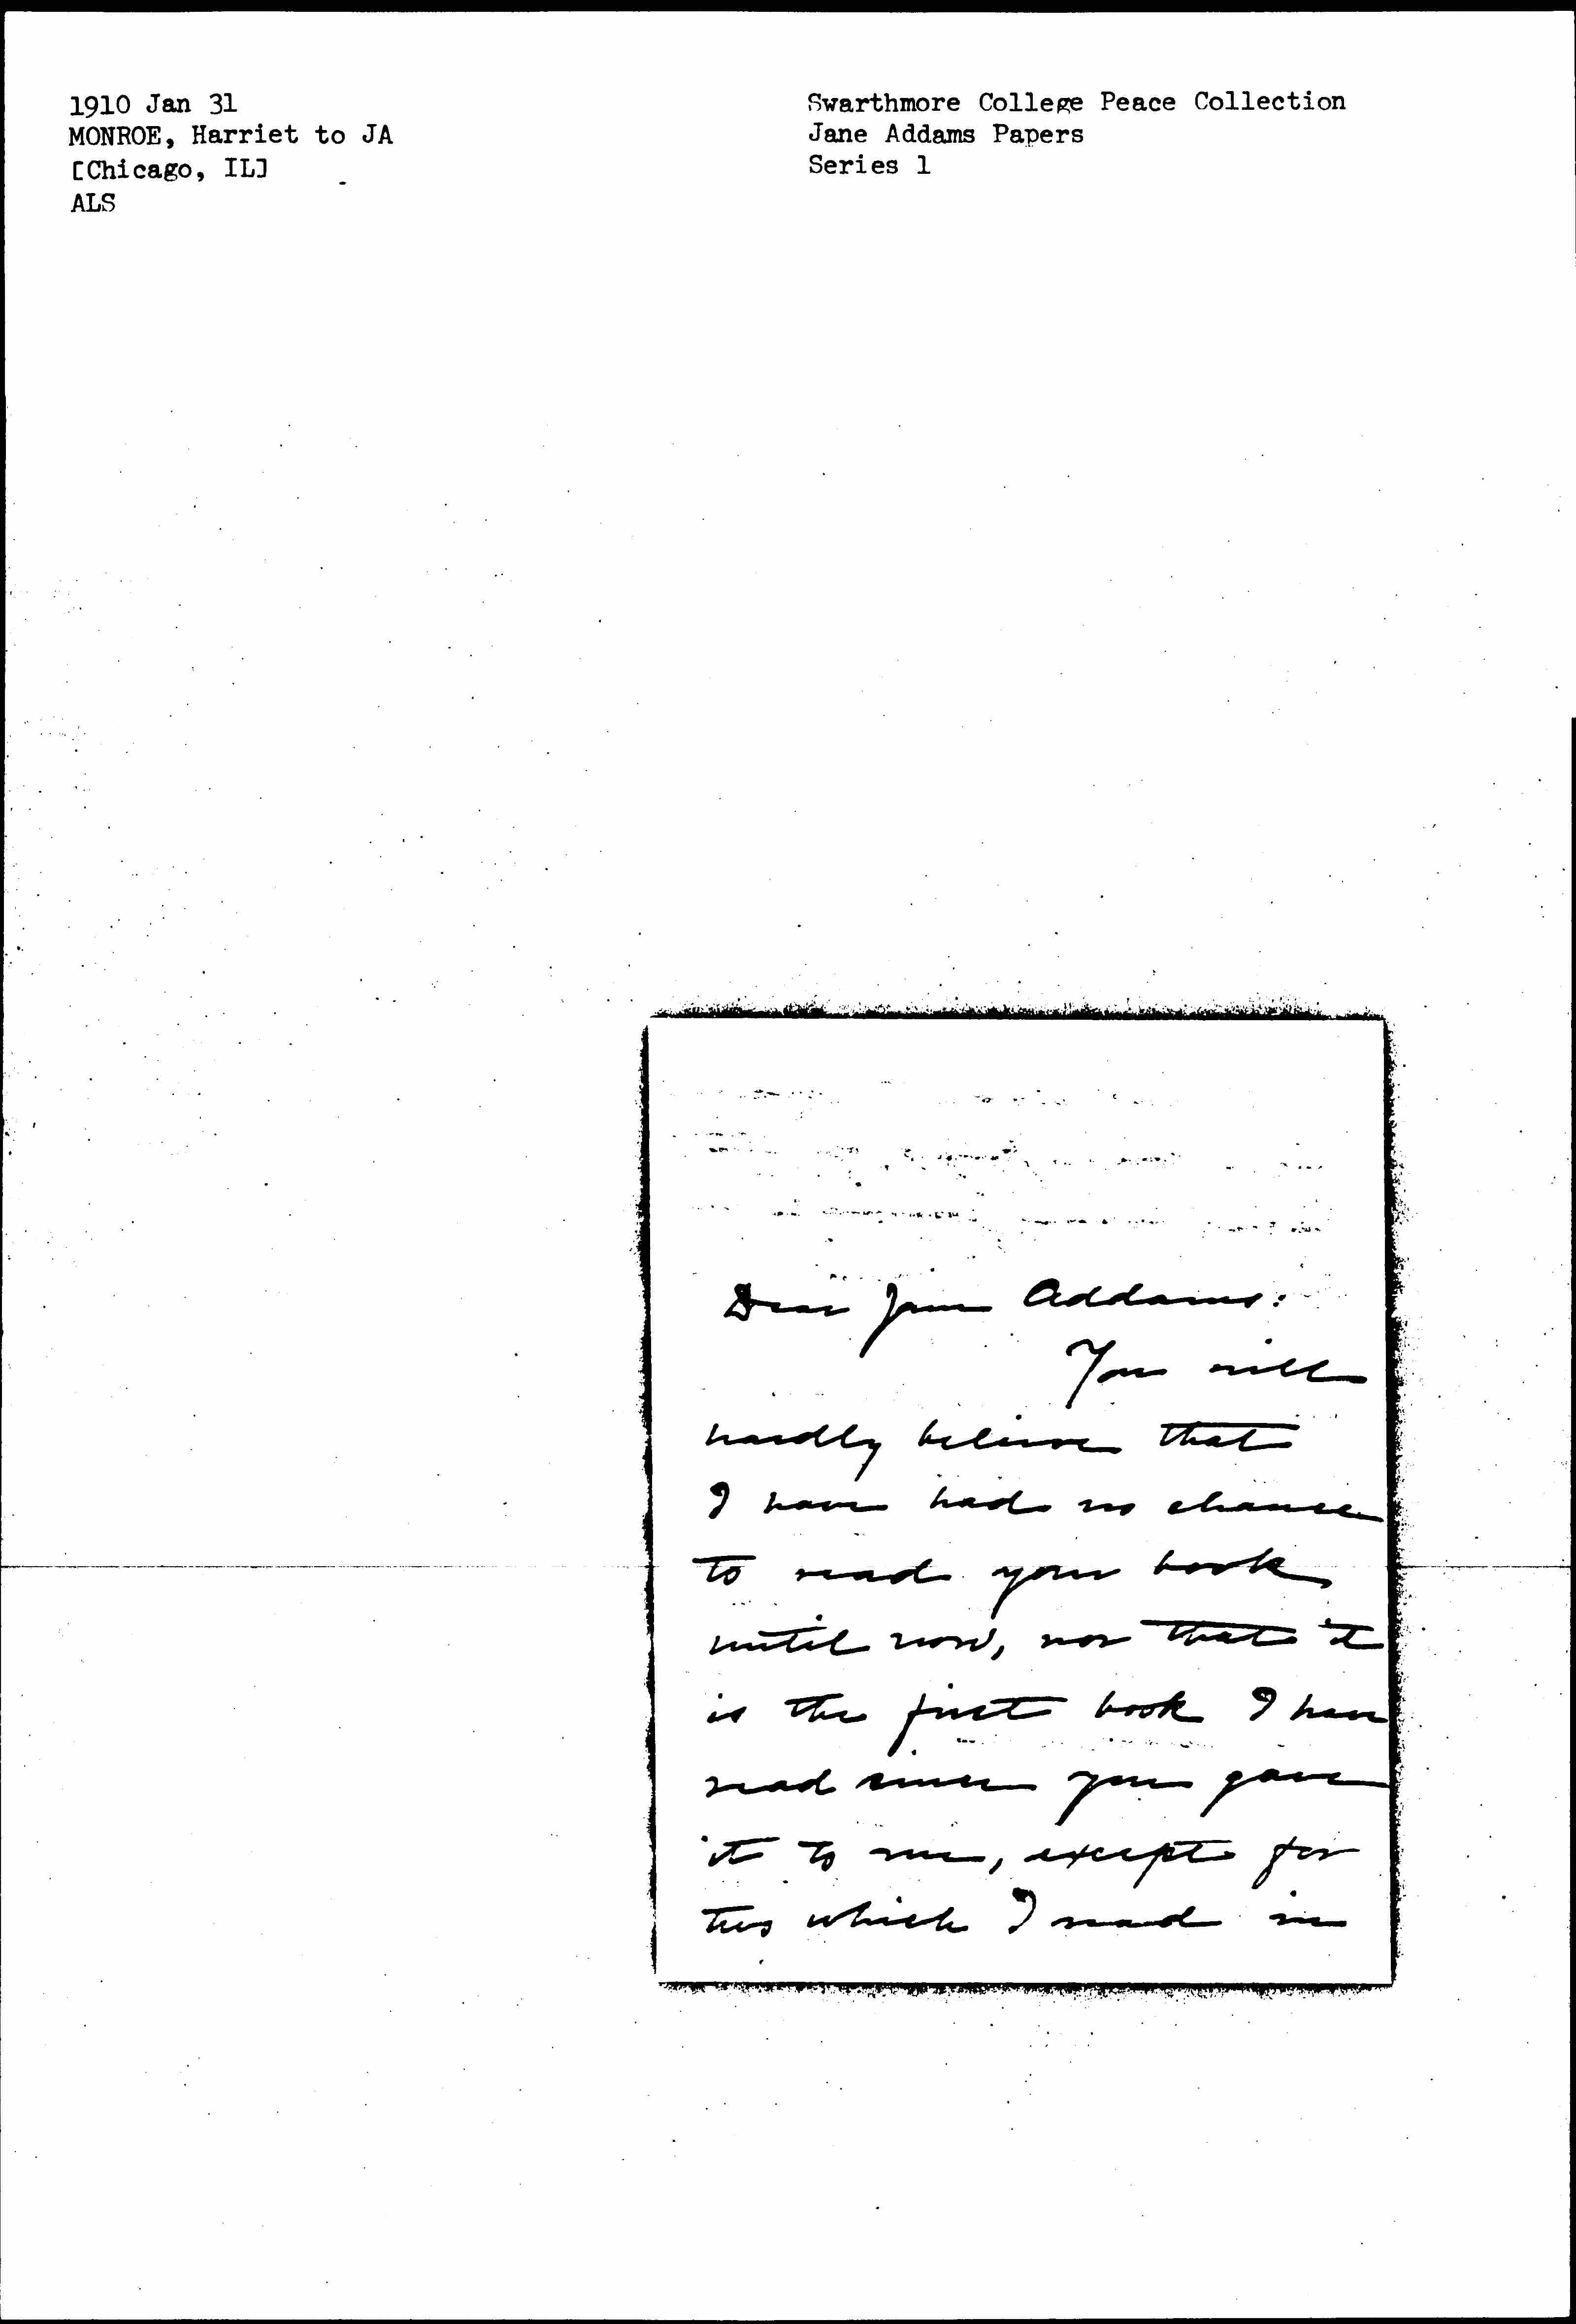 1910 Jan 31
MONROE, Harriet to JA
[Chicago, IL]
ALS
Swarthmore College Peace Collection
Jane Addams Papers
Series 1
Dear Jane Addams:
You will
hardly believe that
I have had no chance
to read your book
until now, nor that it
is the first book I have
read since you gave
it to me, except for
two which I read in